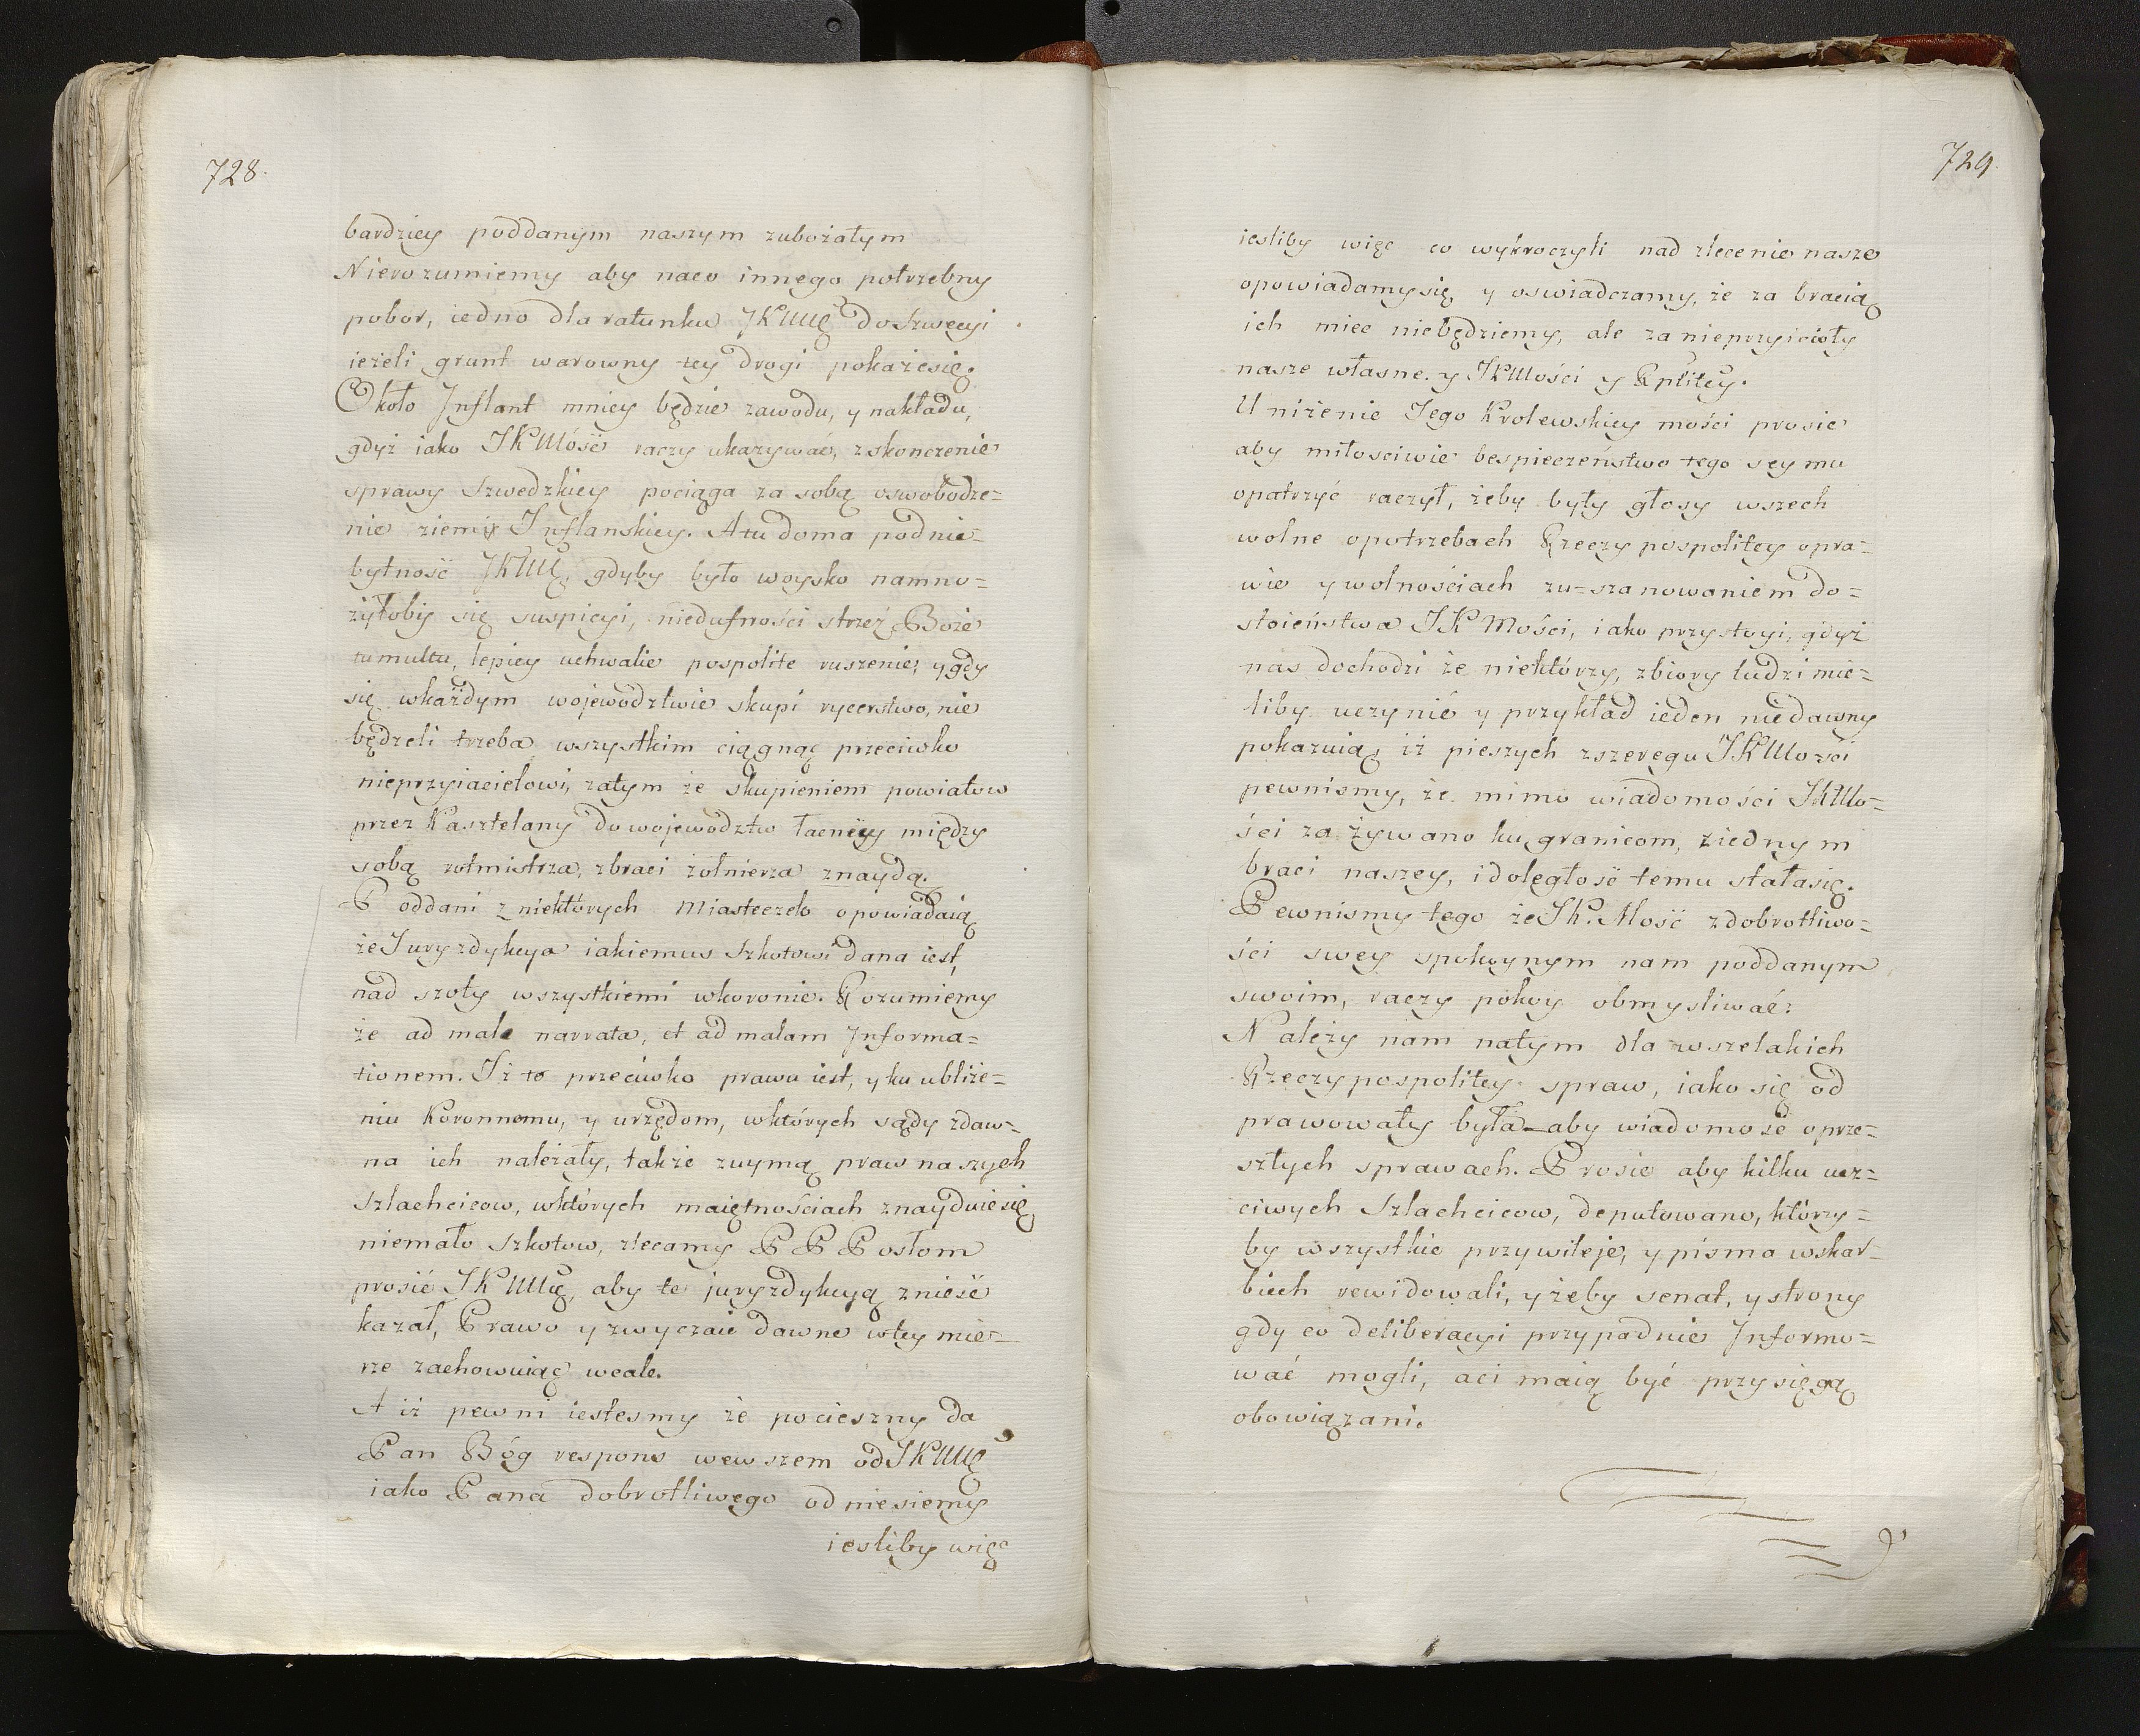 728.
bardziey poddanym naszym zubożałym
Nierozumiemy aby naco innego potrzebny
pobor, iedno dla ratunku JKMę do Szwecyi
ieżeli grunt warowny tey drogi pokażesię.
Około Inflant mniey będzie zawodu, y nakładu,
gdyż iako JKMość raczy ukazywać, zskonczenie
sprawy Szwedzkiey pociąga za sobą oswobodze=
nie ziemi Inflanskiey. Atu doma podnie=
bytność JKMę, gdyby było woysko namno=
żyłoby się suspicyi, niedufności strzeż Boże
tumultu, lepiey uchwalic pospolite ruszenie, y gdy
się wkażdym województwie skupi rycerstwo, nie
będzeli trzeba wszystkim ciągnąć przeciwko
nieprzyiacielowi, zatym że skupieniem powiatow
przez Kasztelany do województw łacniey między
sobą rotmistrza, zbraci żołnierza znaydą.
Poddani z niektórych Miasteczek opowiadaią
że Juryzdykcya iakiemus Szkotowi dana iest,
nad szoty wszystkiemi wkoronie. Rozumiemy
że ad male narrata, et ad malam Informa=
tionem. Iż to przeciwko prawu iest, y ku ubliże=
niu Koronnemu, y urzędom, wktórych sądy zdaw=
na ich należały, także zuymą praw naszych
Szlachcicow, wktórych maiętnościach znayduie się
niemało Szkotow, zlecamy PP Posłom
prosić JKMę, aby te juryzdykcyą znieść
kazał, Prawo y zwyczaie dawne wtey mie=
rze zachowuiąc wcale.
A iż pewni iestesmy że pocieszny da
Pan Bóg respons wewszem od JKMę
iako Pana dobrotliwego odniesiemy
iesliby więc
729.
iesliby więc co wykroczyli nad zlecenie nasze
opowiadamysię y oswiadczamy, że za bracią
ich miec niebędziemy, ale za nieprzyicioły
nasze własne. y JKMości y Rplitey.
Uniżenie Jego Krolewskiey mości prosic
aby miłosciwie bespieczeństwo tego seymu
opatrzyć raczył, żeby były głosy wszech
wolne opotrzebach Rzeczypospolitey opra=
wie y wolnościach zu=szanowaniem do=
stoieństwa JK Mości, iako przystoyi, gdyż
nas dochodzi że niektórzy, zbiory ludzi mie=
liby uczynić y przykład ieden niedawny
pokazuią, iż pieszych zszeregu JKMości
pewnismy, że mimo wiadomości JKMo=
ści zażywano ku granicom, ziednym
braci naszey, i doległość temu stałasię.
Pewnismy tego że JK. Mość zdobrotliwo=
ści swey spokoynym nam poddanym
swoim, raczy pokoy obmysliwać:
Należy nam natym dla wszelakich
Rzeczypospolitey spraw, iako się od
prawowały była aby wiadomość oprze=
szłych sprawach. Prosic aby kilku ucz=
ciwych Szlachcicow, deputowano, którzy=
by wszystkie przywileje, y pisma wskar=
biech rewidowali, y żeby senat, y strony
gdy co deliberacyi przypadnie Informo=
wać mogli, aci maią być przysięgą
obowiązani.